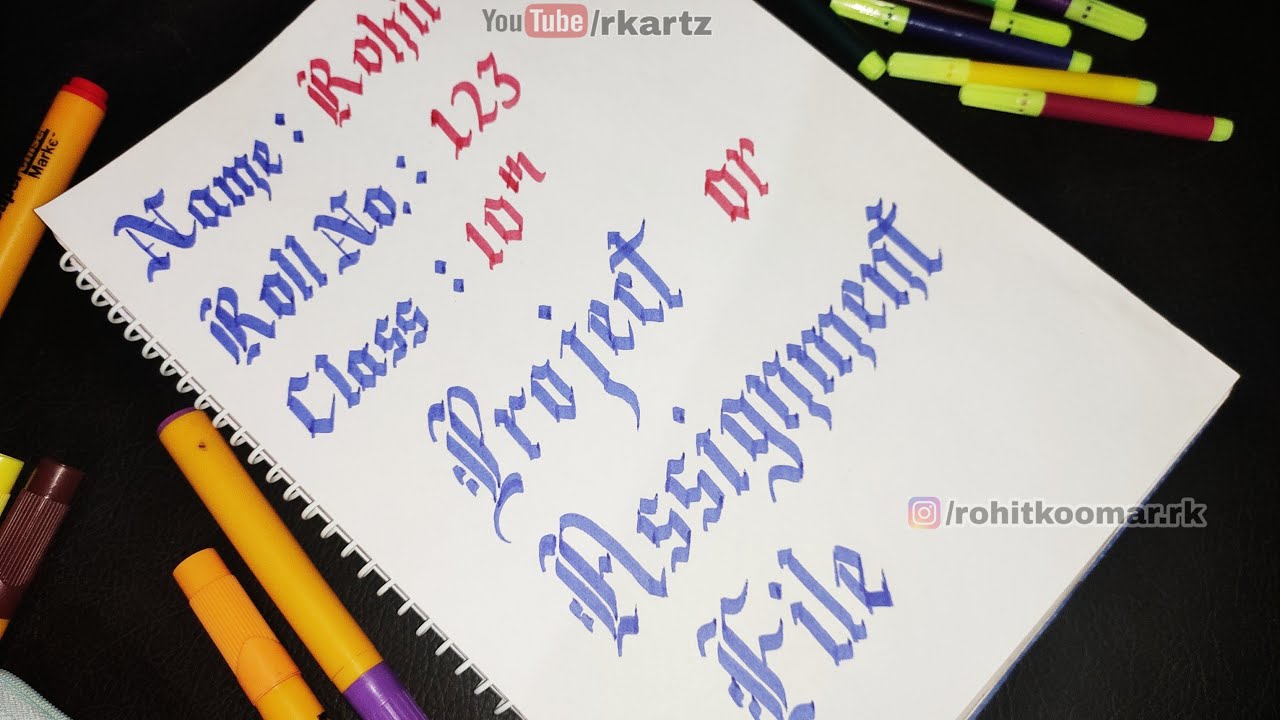 YouTube/rkartz
Name : Rohit
Roll No. : 123
Class : 10th
Project or
Assignment
File
/rohitkoomar.rk
Marke